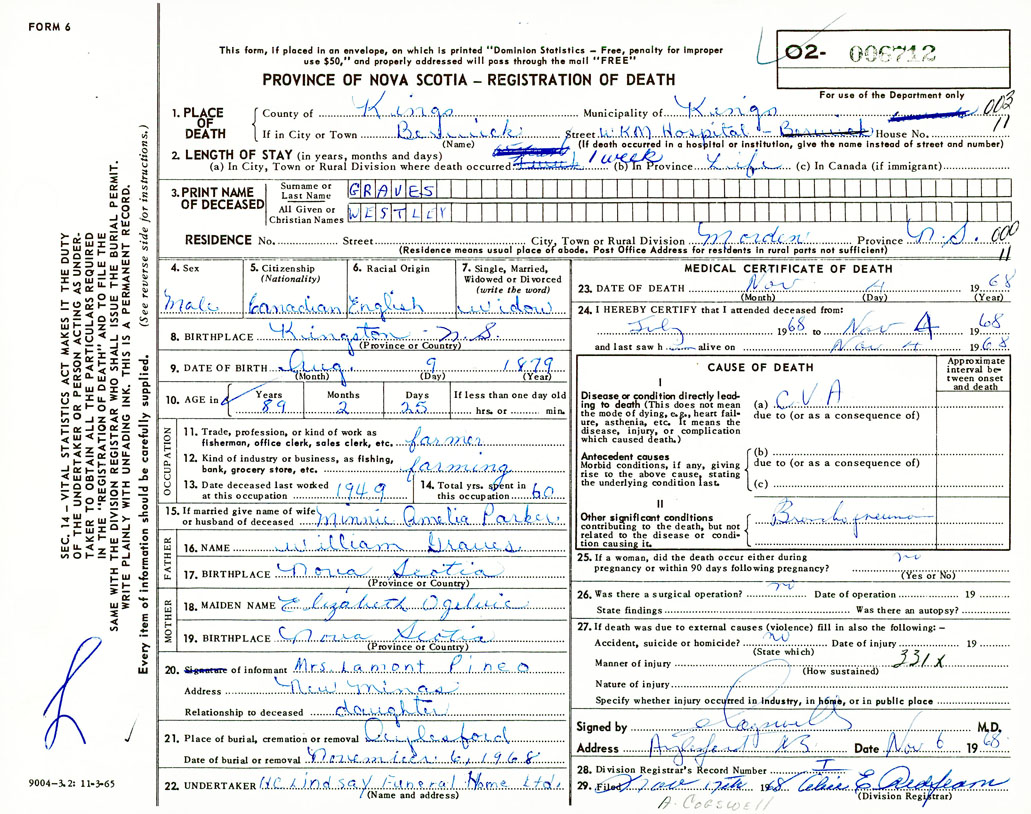 FORM 6
This form, if placed in an envelope, on which is printed "Dominion Statistics – Free, penalty for improper
use $50," and properly addressed will pass through the mail "FREE"
PROVINCE OF NOVA SCOTIA – REGISTRATION OF DEATH
O2- 006712
For use of the Department only
003
11
1. PLACE OF DEATH
County of Kings Municipality of Kings
If in City or Town Berwick Street WKM Hospital – Berwick House No.
(Name) (If death occurred in a hospital or institution, give the name instead of street and number)
2. LENGTH OF STAY (in years, months and days)
(a) In City, Town or Rural Division where death occurred 1 week (b) In Province Life (c) In Canada (if immigrant)
3. PRINT NAME OF DECEASED
Surname or Last Name GRAVES
All Given or Christian Names WESTLEY
RESIDENCE No. Street City, Town or Rural Division Morden Province N.S. 000
11
(Residence means usual place of abode. Post Office Address for residents in rural parts not sufficient)
4. Sex Male
5. Citizenship (Nationality) Canadian
6. Racial Origin English
7. Single, Married, Widowed or Divorced (write the word) Widow
8. BIRTHPLACE Kingston N.S.
(Province or Country)
9. DATE OF BIRTH Aug. 9 1879
(Month) (Day) (Year)
10. AGE in Years 89 Months 2 Days 25 If less than one day old
hrs. or min.
OCCUPATION
11. Trade, profession, or kind of work as fisherman, office clerk, sales clerk, etc. farmer
12. Kind of industry or business, as fishing, bank, grocery store, etc. farming
13. Date deceased last worked at this occupation 1949
14. Total yrs. spent in this occupation 60
15. If married give name of wife or husband of deceased Minnie Amelia Parker
FATHER
16. NAME William Graves
17. BIRTHPLACE Nova Scotia
(Province or Country)
MOTHER
18. MAIDEN NAME Elizabeth Ogilvie
19. BIRTHPLACE Nova Scotia
(Province or Country)
20. Signature of informant Mrs. Lamont Pineo
Address New Minas
Relationship to deceased daughter
21. Place of burial, cremation or removal Aylesford
Date of burial or removal November 6, 1968
22. UNDERTAKER HC Lindsay Funeral Home Ltd.
(Name and address)
MEDICAL CERTIFICATE OF DEATH
23. DATE OF DEATH Nov 4 1968
(Month) (Day) (Year)
24. I HEREBY CERTIFY that I attended deceased from:
July 1968 to Nov 4 1968
and last saw h alive on Nov 4 1968
CAUSE OF DEATH
Approximate interval between onset and death
I
Disease or condition directly leading to death (This does not mean the mode of dying, e.g., heart failure, asthenia, etc. It means the disease, injury, or complication which caused death.)
(a) CVA
due to (or as a consequence of)
Antecedent causes
Morbid conditions, if any, giving rise to the above cause, stating the underlying condition last.
(b)
due to (or as a consequence of)
(c)
II
Other significant conditions contributing to the death, but not related to the disease or condition causing it.
Bronchopneumonia
25. If a woman, did the death occur either during pregnancy or within 90 days following pregnancy? no
(Yes or No)
26. Was there a surgical operation? no Date of operation 19
State findings Was there an autopsy?
27. If death was due to external causes (violence) fill in also the following: –
Accident, suicide or homicide? no Date of injury 19
(State which)
Manner of injury 331X
(How sustained)
Nature of injury
Specify whether injury occurred in industry, in home, or in public place
Signed by Cogswell M.D.
Address Date Nov 6 1968
28. Division Registrar's Record Number I
29. Filed Nov 17th 1968
(Division Registrar)
A. COGSWELL
SEC. 14 – VITAL STATISTICS ACT MAKES IT THE DUTY
OF THE UNDERTAKER OR PERSON ACTING AS UNDER-
TAKER TO OBTAIN ALL THE PARTICULARS REQUIRED
IN THE "REGISTRATION OF DEATH" AND TO FILE THE
SAME WITH THE DIVISION REGISTRAR WHO SHALL ISSUE THE BURIAL PERMIT.
WRITE PLAINLY WITH UNFADING INK. THIS IS A PERMANENT RECORD.
Every item of information should be carefully supplied. (See reverse side for instructions.)
9004–3.2: 11-3-65